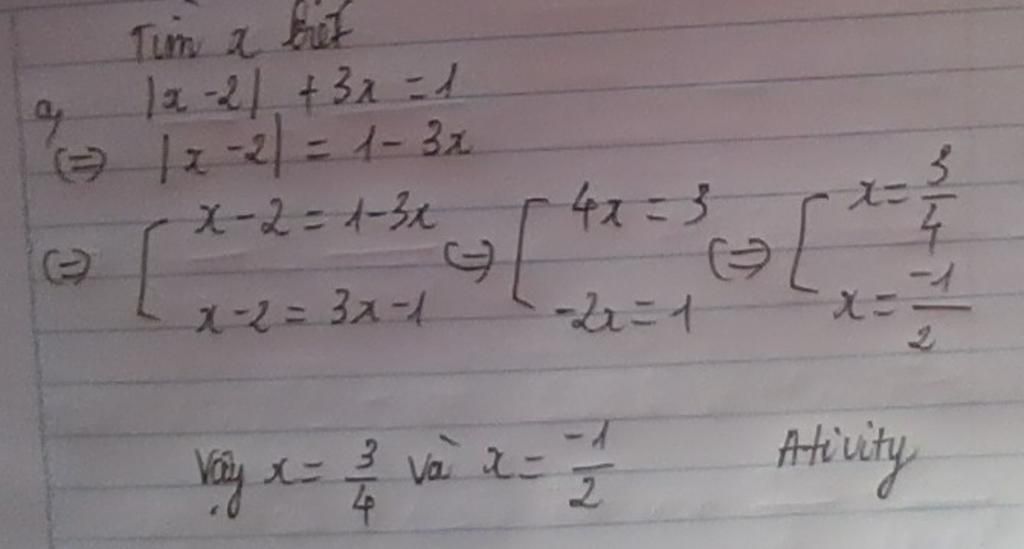 Tìm x biết
a, |x - 2| + 3x = 1
(=) |x - 2| = 1 - 3x
(=) [ x - 2 = 1 - 3x (=) [ 4x = 3 (=) [ x = 3/4
x - 2 = 3x - 1 -2x = 1 x = -1/2
Vậy x = 3/4 và x = -1/2 Ativity